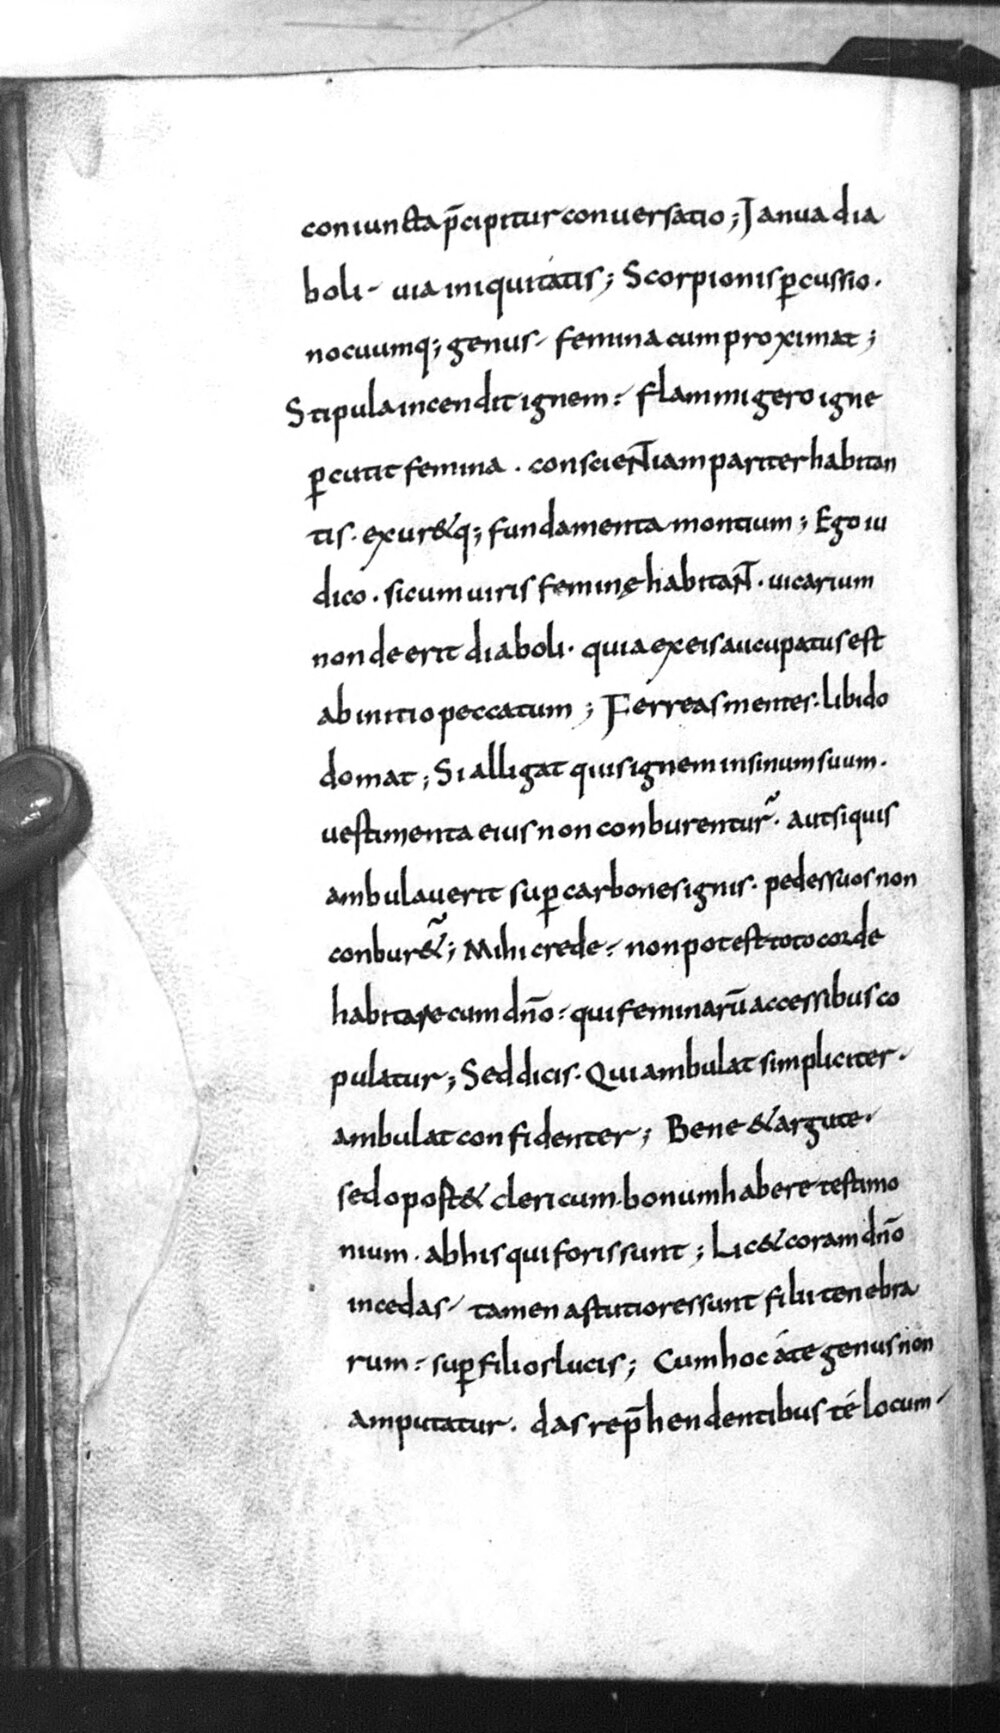 coniuncta p̄cipitur conuersatio; Janua dia
boli· uia iniquitatis; Scorpionis ꝑcussio·
nocuumq; genus· femina cum proximat;
Stipula incendit ignem: flammigero igne
ꝑcutit femina · conscientiam pariter habitan
tis· exur&q; fundamenta montium; Ego iu
dico · si cum uiris feminę habitant · uicarium
non deerit diaboli· quia ex eis aucupatus est
ab initio peccatum; Ferreas mentes· libido
domat; Si alligat quis ignem in sinum suum·
uestimenta eius non conburentur̃· aut si quis
ambulauerit suꝑ carbones ignis· pedes suos non
conbur&̃; Mihi crede· non potest toto corde
habitare cum dn̄o· qui feminarū accessibus co
pulatur; Sed dicis· Qui ambulat simpliciter·
ambulat confidenter; Bene & argute·
sed oport& clericum· bonum habere testimo
nium · ab his qui foris sunt; Lic& coram dn̄o
incedas· tamen astutiores sunt filii tenebra
rum· suꝑ filios lucis; Cum hoc á te genus non
amputatur· das rep̄hendentibus té locum·